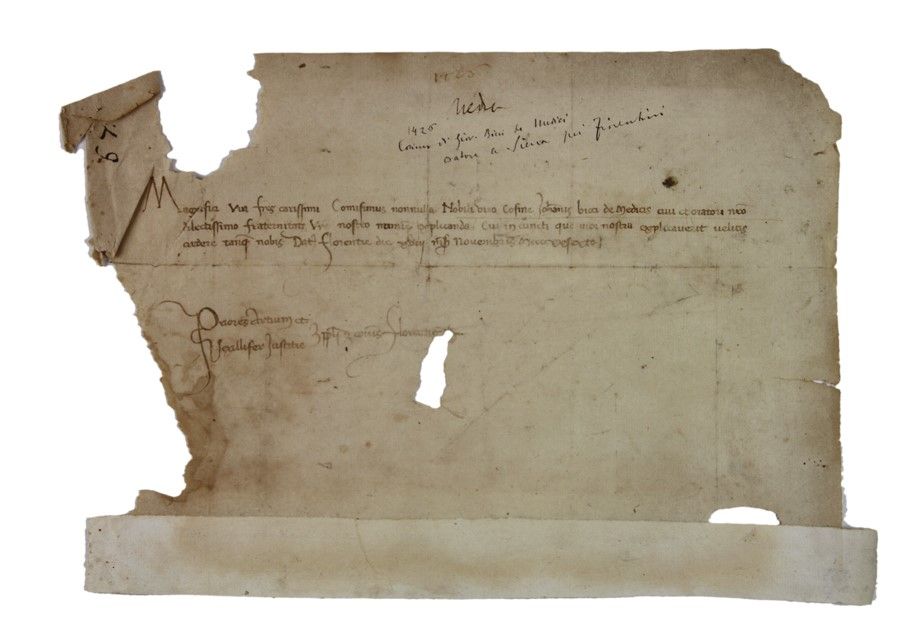 1426
76
1426
Cosimo di Giov. Bicci de Medici
oratore a Siena pei Fiorentini
Magnifici Viri fres carissimi Comisimus nonnulla Nobili viro Cosme Johannis bicci de Medicis civi et oratori nro
dilectissimo fraternitati Vre nostro nomine explicanda. Cui in cunctis que vice nostra explicaverit velitis
credere tanq nobis Dat Florentie die Novembris
Priores Artium et
Vexillifer Justitie ppli et cois Florentie